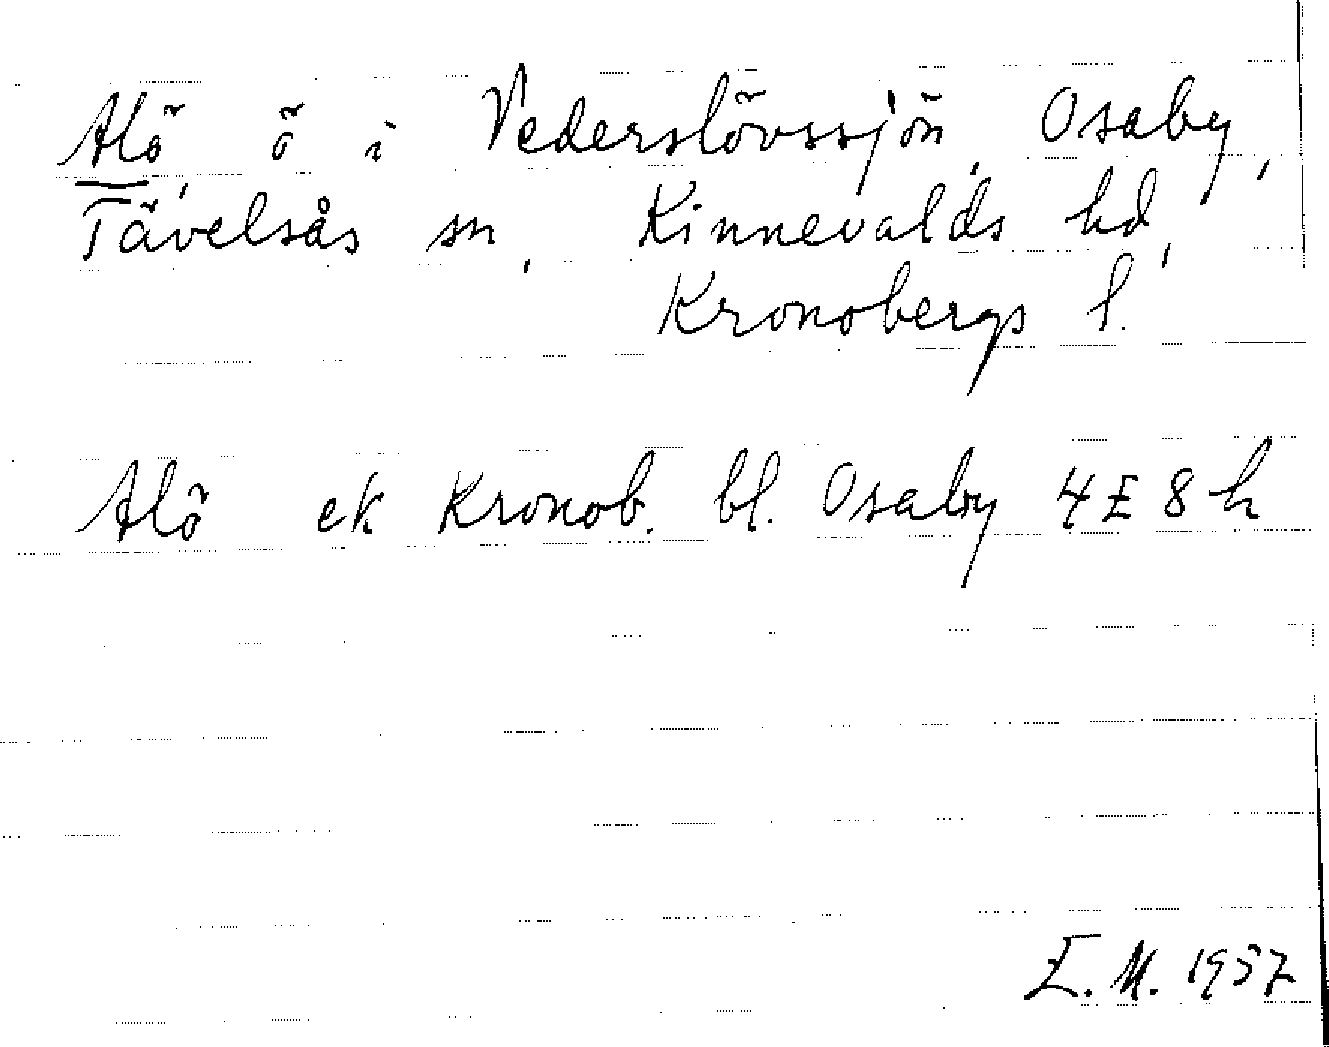 Alö, ö i Vederslövssjön, Osaby,
Tävelsås sn, Kinnevalds hd,
Kronobergs l.
Alö ek Kronob. bl. Osaby 4E8h
E.M. 1957